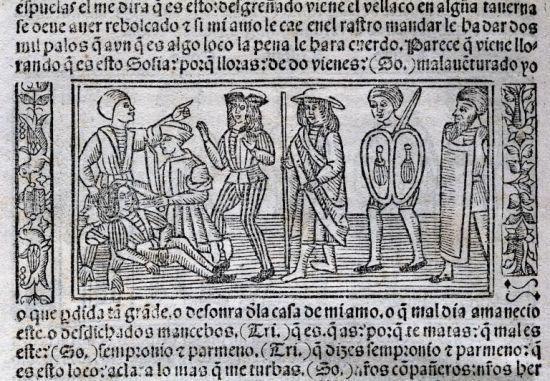 espuelas el me dira q̄ es esto: desgreñado viene el vellaco en algūa tauerna
se deue auer rebolcado ⁊ si mi amo le cae enel rastro mandar le ha dar dos
mil palos q̄ avn q̄ es algo loco la pena le hara cuerdo. Parece q̄ viene llo-
rando q̄ es esto Sosia: porq̄ lloras: de do vienes: (So.) malauēturado yo
o que ꝑdida tā grāde. o desonra dl̄a casa de mi amo. o q̄ mal dia amanecio
este. o desdichados mancebos. (Tri.) q̄ es. q̄ as: porq̄ te matas: q̄ mal es
este: (So.) sempronio ⁊ parmeno. (Tri.) q̄ dizes sempronio ⁊ parmeno: q̄
es esto loco: acla. a lo mas q̄ me turbas. (So.) n̄ros cōpañeros: n̄ros her